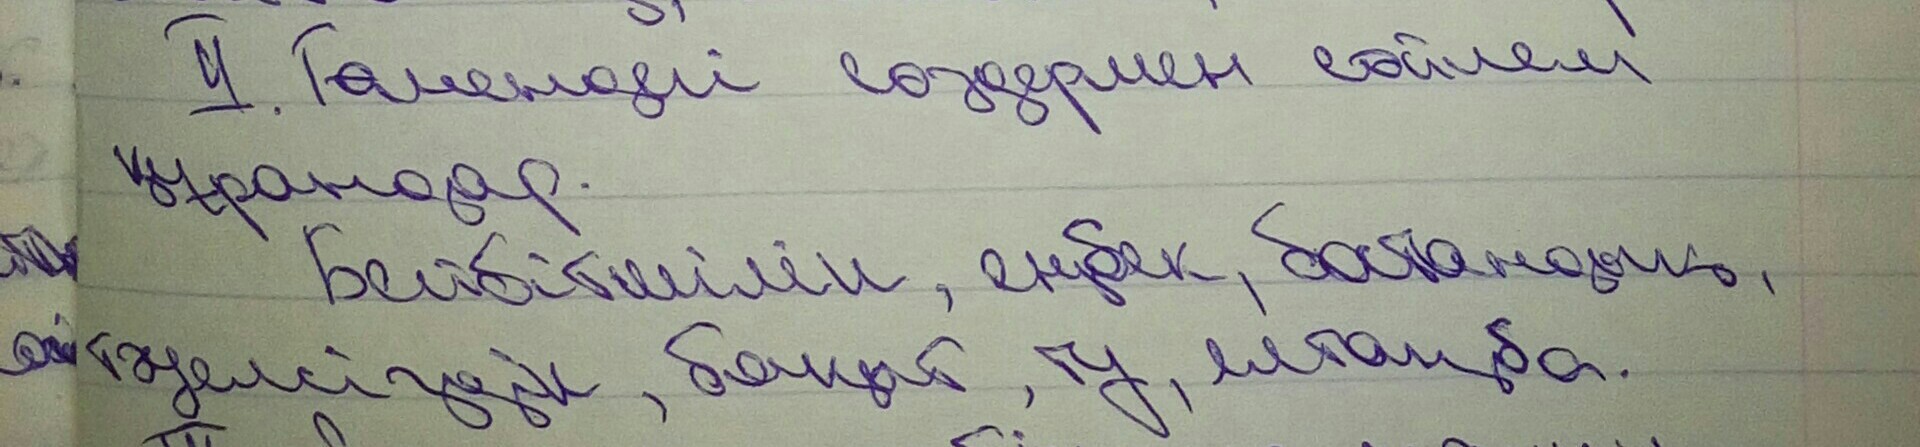 II. Төмендегі сөздермен сөйлем
құрандар.
Бейбітшілік, еңбек, бостандық,
тәуелсіздік, бақыт, ту, елтаңба.